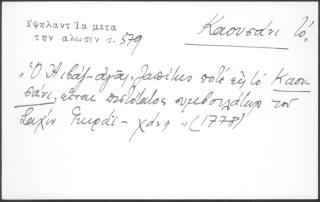 Υψηλαντ Τα μετα
την αλωσιν σ. 579
Καουσάνι τό,
"Ὁ Αϊβάζ-ἀγᾶς, ζαπίτης ποτέ εἰς τό Καου-
σάνι, εἶτα πιστότατος συμβουλάτωρ τοῦ
Σαχίν Γκιράϊ-χάνη" (1778)